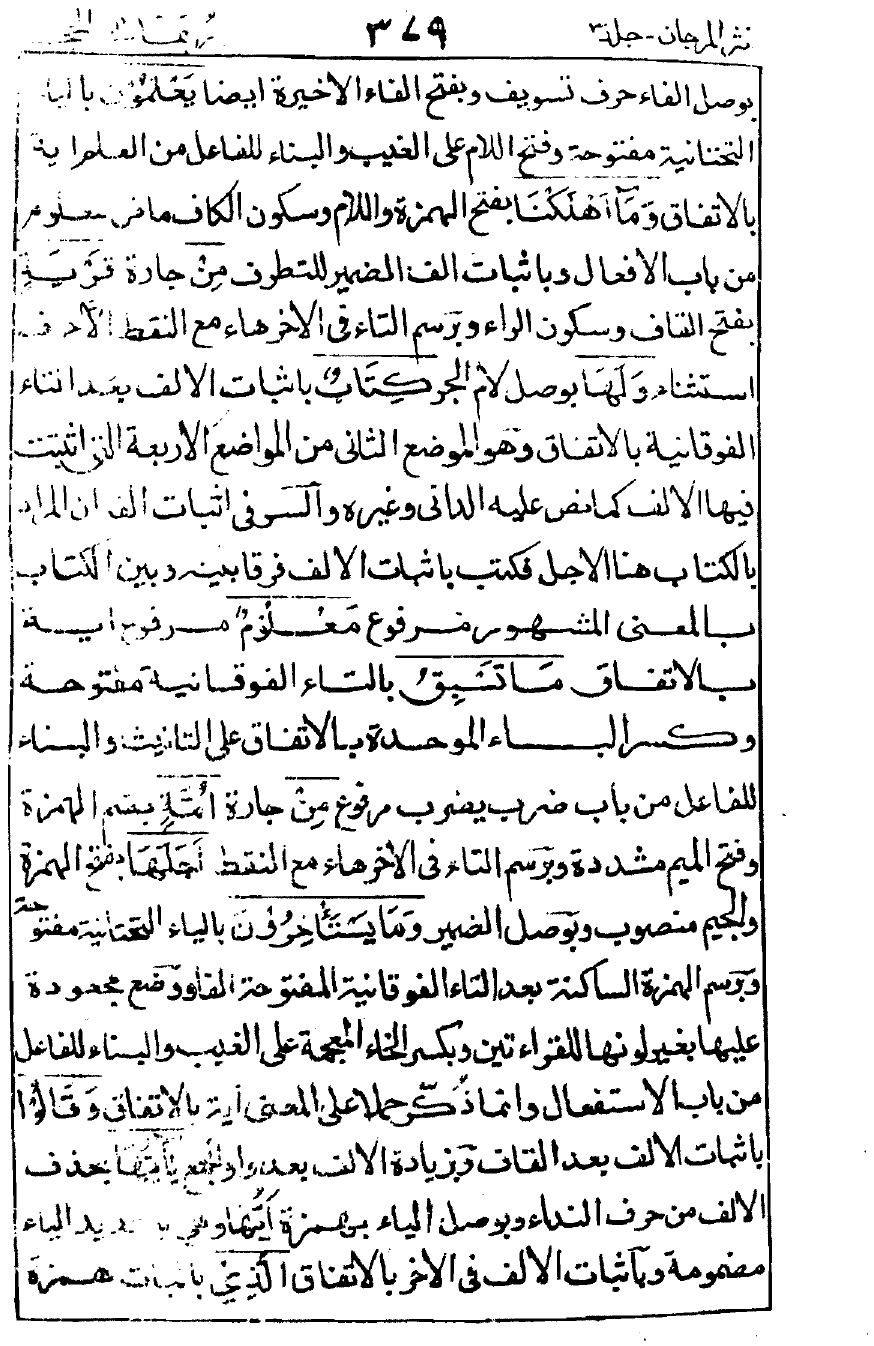 نثر المرجان - جلد ٣ ٣٧٩
بوصل الفاء حرف تسويف وبفتح الفاء الاخيرة ايضا يَعْلَمُوْنَ بالياء
التحتانية مفتوحة وفتح اللام على الغيب والبناء للفاعل من العلم اية
بالاتفاق وَمَآ اَهْلَكْنَا بفتح الهمزة واللام وسكون الكاف ماض معلوم
من باب الافعال وباثبات الف الضمير للتطرف مِنْ جارة قَرْيَةٍ
بفتح القاف وسكون الراء وبرسم التاء فى الاخر هاء مع النقط اِلَّا حرف
استثناء وَلَهَا بوصل لام الجر كِتَابٌ باثبات الالف بعد التاء
الفوقانية بالاتفاق وهو الموضع الثانى من المواضع الاربعة التى اثبتت
فيها الالف كما نص عليه الدانى وغيره والسر فى اثبات الالف ان المراد
بالكتاب هنا الاجل فكتب باثبات الالف فرقا بينه وبين الكتاب
بالمعنى المشهور مرفوع مَعْلُوْمٌ مرفوع اية
بالاتفاق مَا تَسْبِقُ بالتاء الفوقانية مفتوحة
وكسر الباء الموحدة بالاتفاق على التانيث والبناء
للفاعل من باب ضرب يضرب مرفوع مِنْ جارة اُمَّةٍ بضم الهمزة
وفتح الميم مشددة وبرسم التاء فى الاخر هاء مع النقط اَجَلَهَا بفتح الهمزة
والجيم منصوب وبوصل الضمير وَمَا يَسْتَأْخِرُوْنَ بالياء التحتانية مفتوحة
وبرسم الهمزة الساكنة بعد التاء الفوقانية المفتوحة الفا ووضع مجعودة
عليها بغير لونها للقراءتين وبكسر الخاء المعجمة على الغيب والبناء للفاعل
من باب الاستفعال وانما ذكّر حملا على المعنى اية بالاتفاق وَقَالُوْا
باثبات الالف بعد القاف وبزيادة الالف بعد واو الجمع يٰٓاَيُّهَا بحذف
الالف من حرف النداء وبوصل الياء بهمزة اَيُّهَا وهى بتشديد الياء
مضمومة وباثبات الالف فى الاخر بالاتفاق الَّذِيْ باثبات همزة